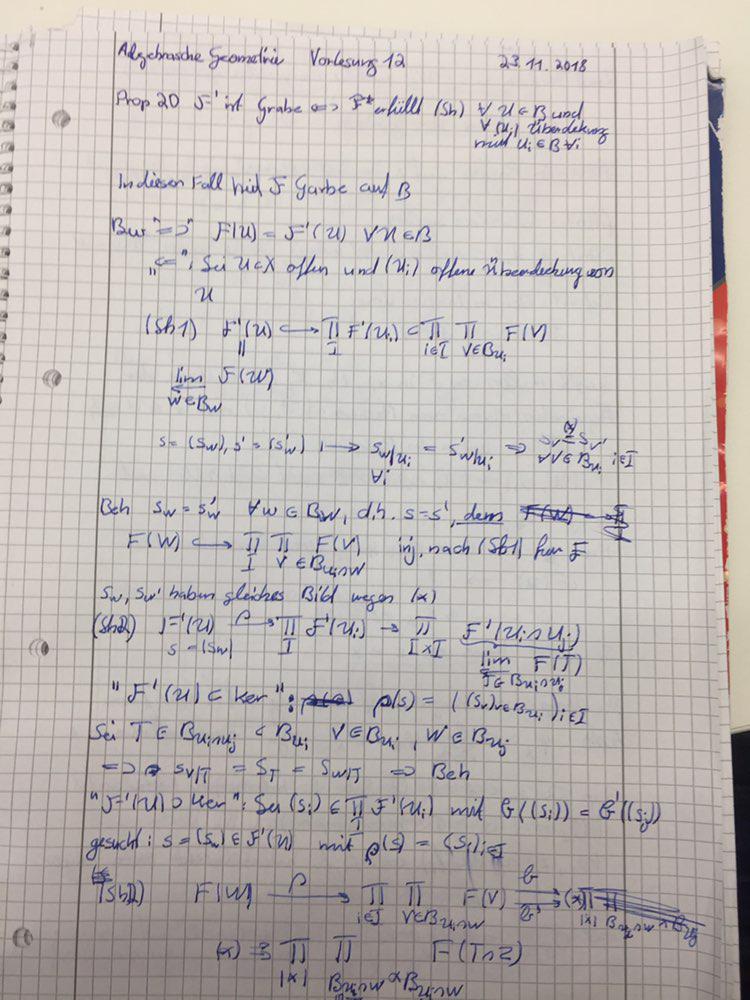 Algebraische Geometrie Vorlesung 12 23.11.2018
Prop 20 F' ist Grabe <=> F erfüllt (Sh) ∀ U ∈ B und
∀ (Ui) Überdekung
mit Ui ∈ B ∀i
In diesen Fall F Garbe auf B
Bw "=>" F(U) = F'(U) ∀U ∈ B
"<=": Sei U ⊂ X offen und (Ui) offene Überdeckung von
U
(Sh1) F'(U) ↪ ∏_I F'(Ui) ⊂ ∏_{i∈I} ∏_{V∈B_{Ui}} F(V)
||
lim_{W∈B_U} F(W)
s = (s_W), s' = (s'_W) ↦ s_{W|Ui} = s'_{W|Ui} => s_V =^{(x)} s_V'
∀i ∀V ∈ B_{Ui} i∈I
Beh s_W = s'_W ∀W ∈ B_W, d.h. s = s', denn
F(W) ↪ ∏_I ∏_{V∈B_{Ui∩W}} F(V) inj, nach (Sh1) für F
s_W, s_W' haben gleiches Bild wegen (x)
(Sh2) F'(U) →^ρ ∏_I F'(Ui) → ∏_{I×I} F'(Ui∩Uj)
s = (s_W) lim_{T∈B_{Ui∩Uj}} F(T)
"F'(U) ⊂ Ker": ρ(s) = ((s_V)_{V∈B_{Ui}})_{i∈I}
Sei T ∈ B_{Ui∩Uj} ⊂ B_{Ui} V∈B_{Ui}, W∈B_{Uj}
=> s_{V|T} = s_T = s_{W|T} => Beh
"F'(U) ⊃ Ker": Sei (si) ∈ ∏_I F'(Ui) mit σ((si)) = σ'((sj))
gesucht: s = (s_W) ∈ F'(U) mit ρ(s) = (si)_{i∈I}
(Sh2) F(W) →^ρ ∏_{i∈I} ∏_{V∈B_{Ui∩W}} F(V) ⇉^σ_{σ'} (x)
(x) ∏_{I×I} ∏_{B_{Ui∩W}×B_{Uj∩W}} F(T∩Z)